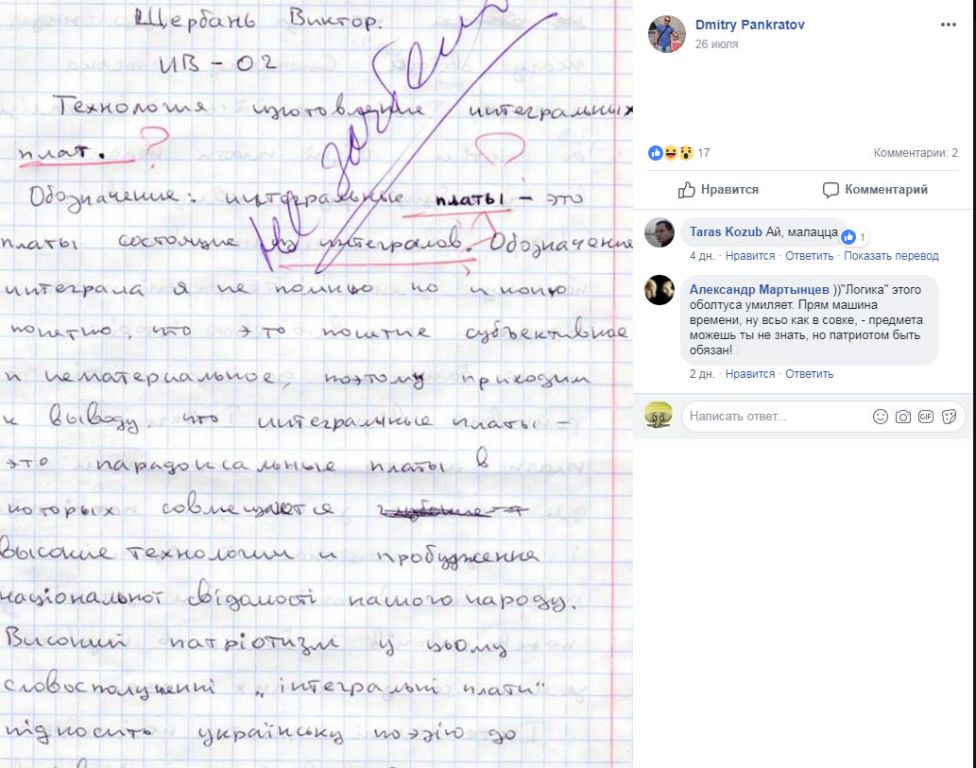 Щербань Виктор.
ИВ-02
Технология изготовление интегральных
плат. ?
?
Не зараб
Обозначение: интегральные платы - это
платы состоящие из интегралов. Обозначение
интеграла я не помню но и коню
понятно, что это понятие субъективное
и нематериальное, поэтому приходим
к выводу, что интегральные платы -
это парадоксальные платы в
которых совмещаются
высокие технологии и пробудження
національної свідомості нашого народу.
Високий патріотизм у цьому
словосполученні „інтегральні плати“
підносить українську поэзію до
Dmitry Pankratov
26 июля
17
Комментарии: 2
Нравится Комментарий
Taras Kozub Ай, малацца
1
4 дн. · Нравится · Ответить · Показать перевод
Александр Мартынцев ))"Логика" этого
оболтуса умиляет. Прям машина
времени, ну всьо как в совке, - предмета
можешь ты не знать, но патриотом быть
обязан!
2 дн. · Нравится · Ответить
Написать ответ...
GIF